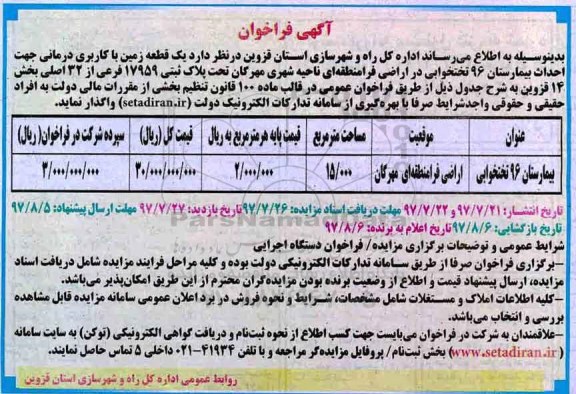 آگهی فراخوان
بدینوسیله به اطلاع می‌رساند اداره کل راه و شهرسازی استان قزوین درنظر دارد یک قطعه زمین با کاربری درمانی جهت
احداث بیمارستان ۹۶ تختخوابی در اراضی فرامنطقه‌ای ناحیه شهری مهرگان تحت پلاک ثبتی ۱۷۹۵۹ فرعی از ۳۲ اصلی بخش
۱۴ قزوین به شرح جدول ذیل از طریق فراخوان عمومی در قالب ماده ۱۰۰ قانون تنظیم بخشی از مقررات مالی دولت به افراد
حقیقی و حقوقی واجدشرایط صرفا با بهره‌گیری از سامانه تدارکات الکترونیک دولت (setadiran.ir) واگذار نماید.
عنوان موقعیت مساحت مترمربع قیمت پایه هرمترمربع به ریال قیمت کل (ریال) سپرده شرکت در فراخوان( ریال)
بیمارستان ۹۶ تختخوابی اراضی فرامنطقه‌ای مهرگان ۱۵/۰۰۰ ۲/۰۰۰/۰۰۰ ۳۰/۰۰۰/۰۰۰/۰۰۰ ۳/۰۰۰/۰۰۰/۰۰۰
تاریخ انتشار: ۹۷/۷/۲۱ و ۹۷/۷/۲۲ مهلت دریافت اسناد مزایده: ۹۷/۷/۲۶ تاریخ بازدید: ۹۷/۷/۲۷ مهلت ارسال پیشنهاد: ۹۷/۸/۵
تاریخ بازگشایی: ۹۷/۸/۶ تاریخ اعلام به برنده: ۹۷/۸/۶
شرایط عمومی و توضیحات برگزاری مزایده/ فراخوان دستگاه اجرایی
–برگزاری فراخوان صرفا از طریق سامانه تدارکات الکترونیکی دولت بوده و کلیه مراحل فرایند مزایده شامل دریافت اسناد
مزایده، ارسال پیشنهاد قیمت و اطلاع از وضعیت برنده بودن مزایده‌گران محترم از این طریق امکان‌پذیر می‌باشد.
–کلیه اطلاعات املاک و مستغلات شامل مشخصات، شرایط و نحوه فروش در برد اعلان عمومی سامانه مزایده قابل مشاهده
بررسی و انتخاب می‌باشد.
–علاقمندان به شرکت در فراخوان می‌بایست جهت کسب اطلاع از نحوه ثبت‌نام و دریافت گواهی الکترونیکی (توکن) به سایت سامانه
(www.setadiran.ir) بخش ثبت‌نام/ پروفایل مزایده‌گر مراجعه و با تلفن ۴۱۹۳۴–۰۲۱ داخلی ۵ تماس حاصل نمایند.
روابط عمومی اداره کل راه و شهرسازی استان قزوین